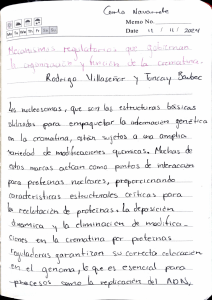 Camilo Navarrete
Memo No.
Mo Tu We Th Fr Sa Su
Date 11 / 11 / 2024
Mecanismos regulatorios que gobiernan
la organización y función de la cromatina.
Rodrigo Villaseñor y Tuncay Baubec
Los nucleosomas, que son las estructuras básicas
utilizadas para empaquetar la información genética
en la cromatina, están sujetos a una amplia
variedad de modificaciones químicas. Muchas de
estas marcas actúan como puntos de interacción
para proteínas nucleares, proporcionando
características estructurales críticas para
la reclutación de proteínas. La deposición
dinámica y la eliminación de modifica-
ciones en la cromatina por proteínas
reguladoras garantizan su correcta colocación
en el genoma, lo que es esencial para
procesos como la replicación del ADN,